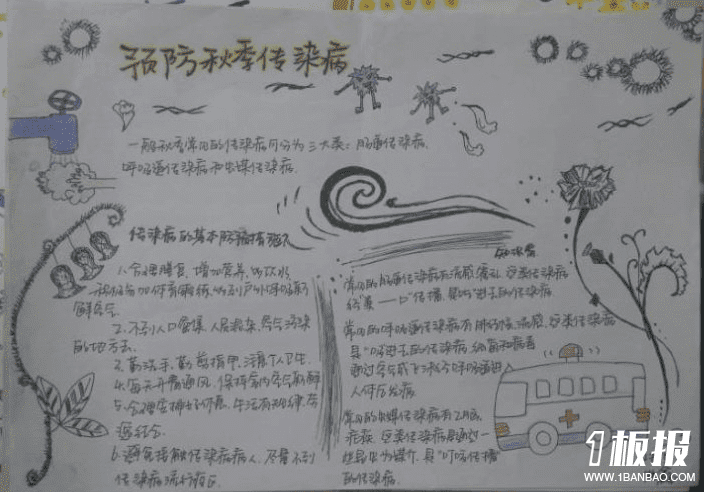 预防秋季传染病
一般秋季常见的传染病可分为三大类:肠道传染病,
呼吸道传染病和虫媒传染病.
传染病的基本防治措施
1.合理膳食,增加营养,多饮水
加体育锻炼,多到户外呼吸新
鲜空气.
2.不到人口密集,人员混杂,空气污染
的地方去.
3.勤洗手,勤剪指甲,注意个人卫生.
4.每天开窗通风,保持室内空气新鲜
5.合理安排好作息,生活有规律,劳
逸结合.
6.避免接触传染病病人,尽量不到
传染病流行疫区.
常见的肠道传染病有
一口传播,是吃进去的传染病
常见的呼吸道传染病有 流感,这类传染病
是"吸进去的传染病,细菌和病毒
通过空气或飞沫 呼吸道进
人体后发病
常见的虫媒传染病有乙脑,
疟疾,这类传染病是通过一
些昆虫为媒介,是"叮咬传播
的传染病.
1板报
WWW.1BANBAO.COM